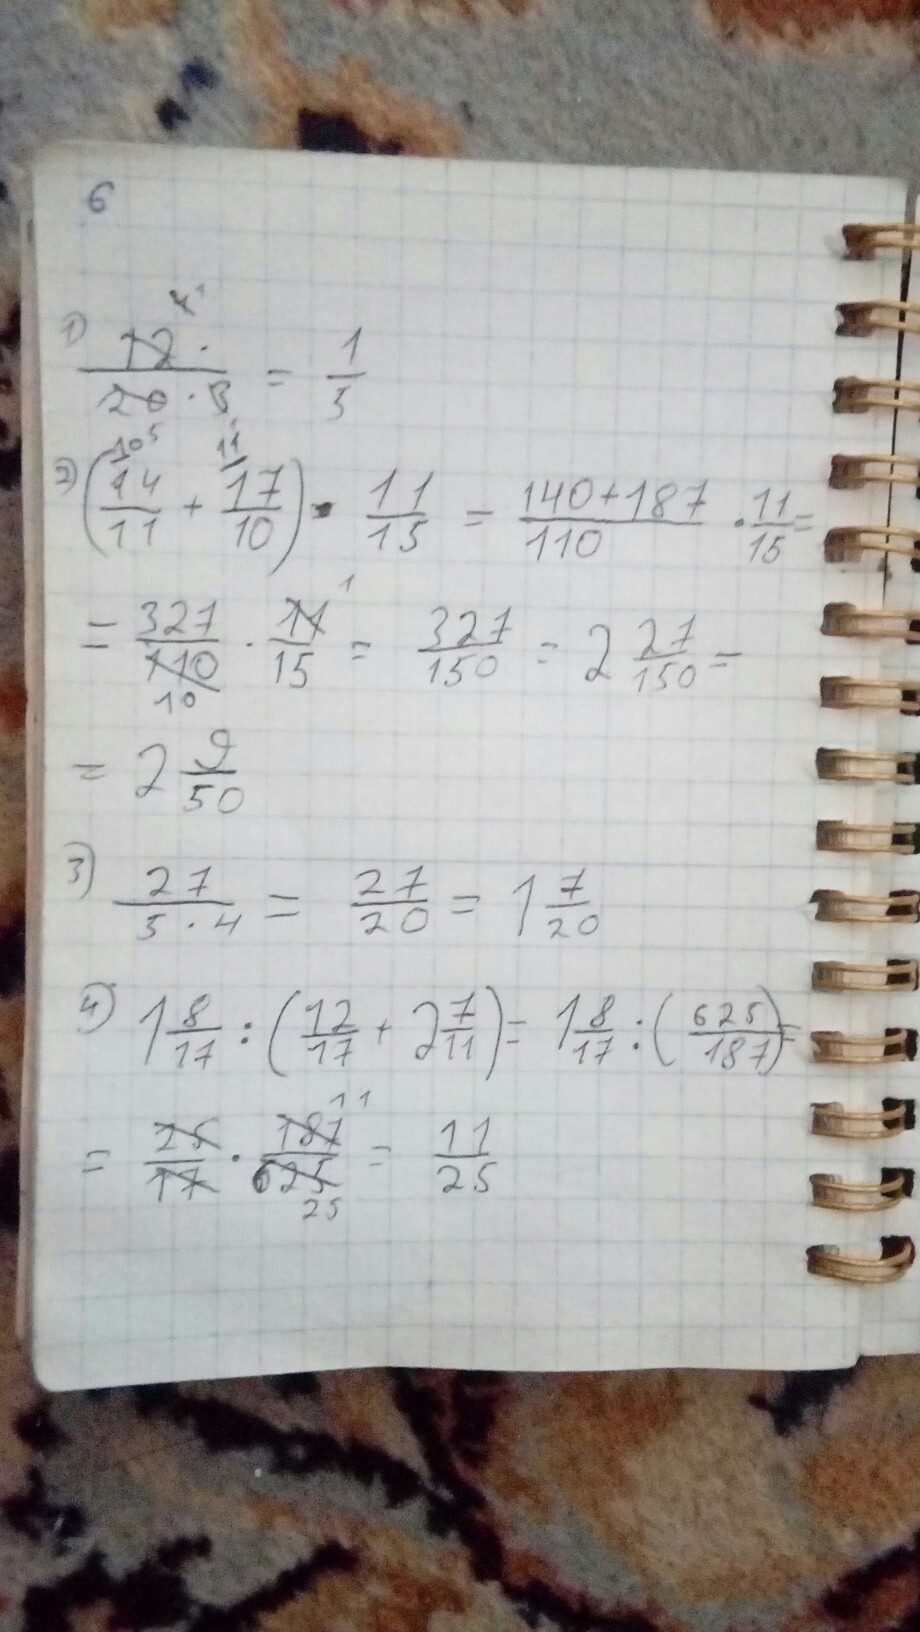 6
1) 12 · / 20 · 3 = 1/5
2) (14/11 + 17/10) · 11/15 = 140+187/110 · 11/15 =
= 327/110 · 11/15 = 327/150 = 2 27/150 =
= 2 9/50
3) 27/5·4 = 27/20 = 1 7/20
4) 1 8/17 : (12/17 + 2 7/11) = 1 8/17 : (625/187) =
= 25/17 · 187/625 = 11/25